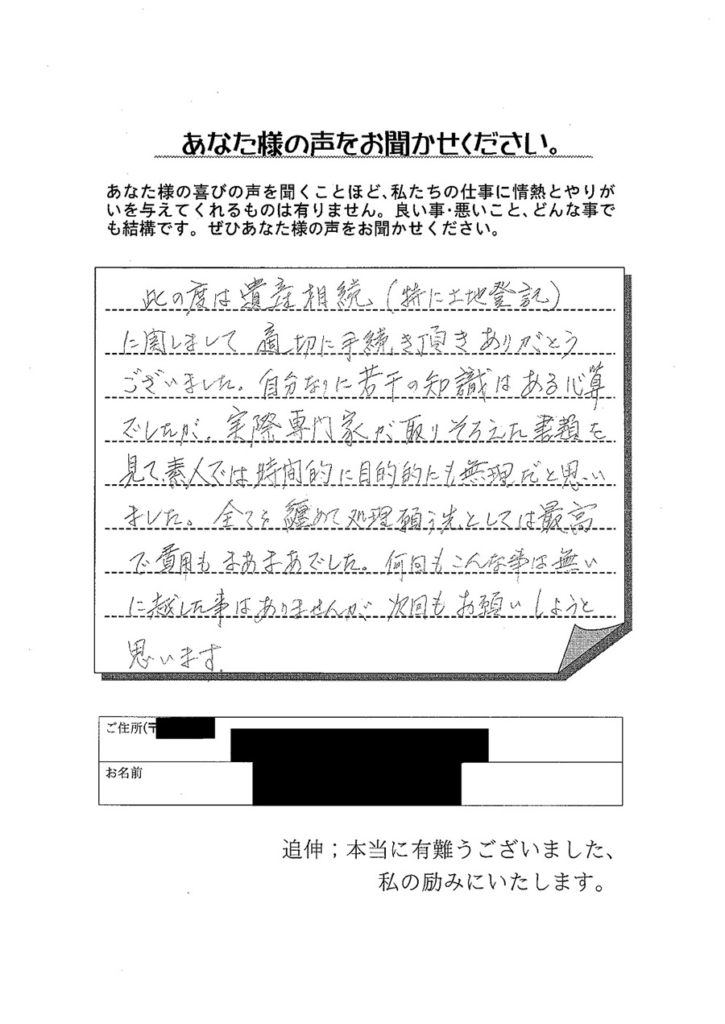 あなた様の声をお聞かせください。
あなた様の喜びの声を聞くことほど、私たちの仕事に情熱とやりが
いを与えてくれるものは有りません。良い事・悪いこと、どんな事で
も結構です。ぜひあなた様の声をお聞かせください。
此の度は遺産相続(特に土地登記)
に関しまして適切に手続き頂きありがとう
ございました。自分なりに若干の知識はある心算
でしたが、実際専門家が取りそろえた書類を
見て、素人では時間的に目的的にも無理だと思い
ました。全てを纏めて処理願う先としては最高
で費用もまあまあでした。何回もこんな事は無い
に越した事はありませんが次回もお願いしようと
思います。
ご住所(〒
お名前
追伸;本当に有難うございました、
私の励みにいたします。